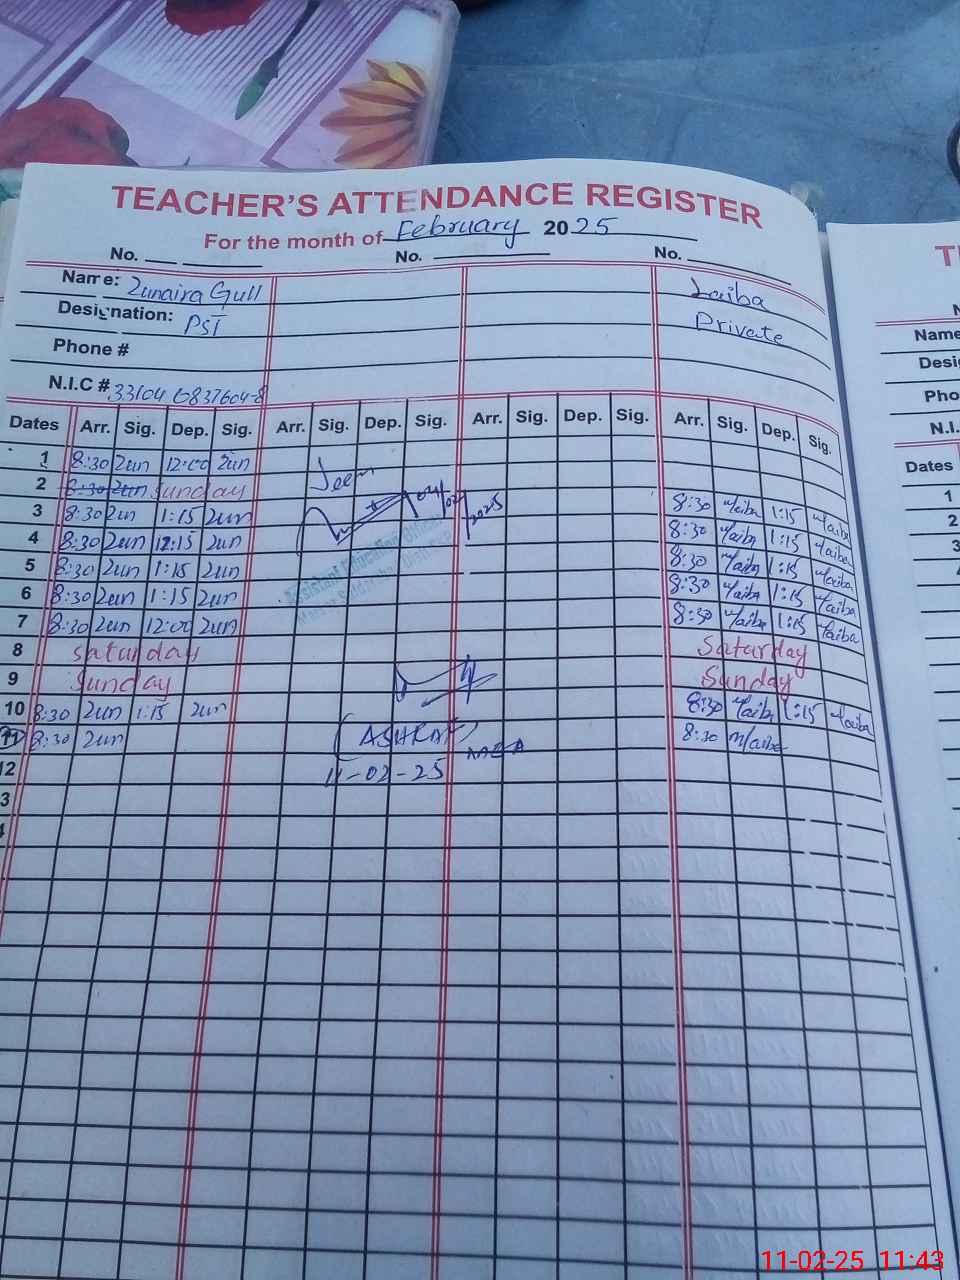 TEACHER'S ATTENDANCE REGISTER
For the month of February 2025
No. No. No.
Name: Zunaira Gull Laiba
Designation: PST Private
Phone #
N.I.C # 33104 6837604-8
Dates Arr. Sig. Dep. Sig. Arr. Sig. Dep. Sig. Arr. Sig. Dep. Sig. Arr. Sig. Dep. Sig.
1 8:30 Zun 12:00 Zun Seen
2 8:30 Zun Sunday
3 8:30 Zun 1:15 Zun 04/02/2025 8:30 Laiba 1:15 Laiba
4 8:30 Zun 12:15 Zun 8:30 Laiba 1:15 Laiba
5 8:30 Zun 1:15 Zun Assistant Education Officer 8:30 Laiba 1:15 Laiba
6 8:30 Zun 1:15 Zun 8:30 Laiba 1:15 Laiba
7 8:30 Zun 12:00 Zun 8:30 Laiba 1:15 Laiba
8 Saturday Saturday
9 Sunday Sunday
10 8:30 Zun 1:15 Zun 8:30 Laiba 1:15 Laiba
11 8:30 Zun (ASHRAF) MEA 8:30 Laiba
12 11-02-25
3
4
T
Name
Desi
Pho
N.I.
Dates
1
2
3
4
5
6
7
8
9
10
11-02-25 11:43